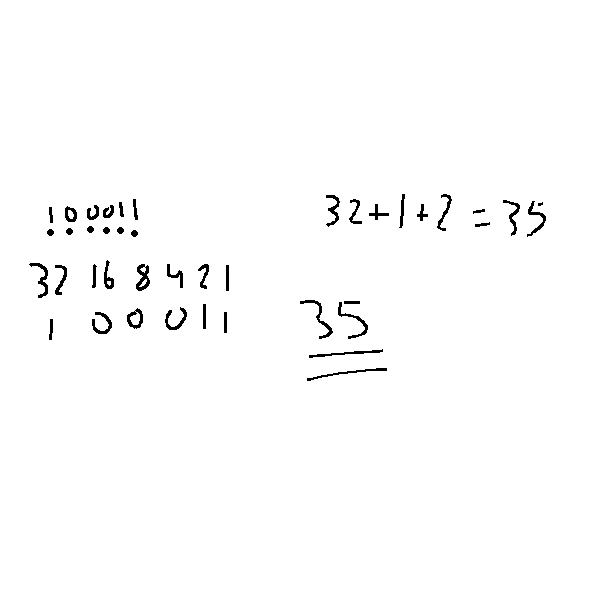 100011
32 16 8 4 2 1
1 0 0 0 1 1
32+1+2=35
35